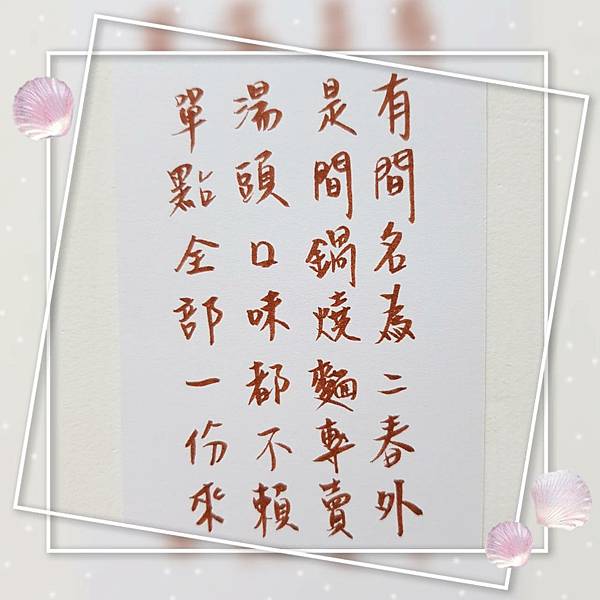 有間名為二春外
是間鍋燒麵專賣
湯頭口味都不賴
單點全部一份來